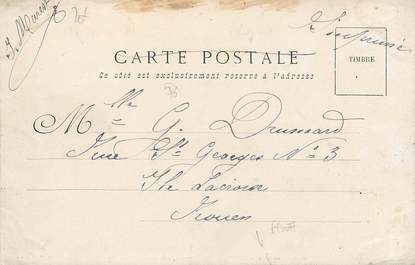 J. Marest
CARTE POSTALE
Ce côté est exclusivement reservé à l'adresse
TIMBRE
Mlle G. Drumard
Rue St Georges No 3
Ile Lacroix
Rouen